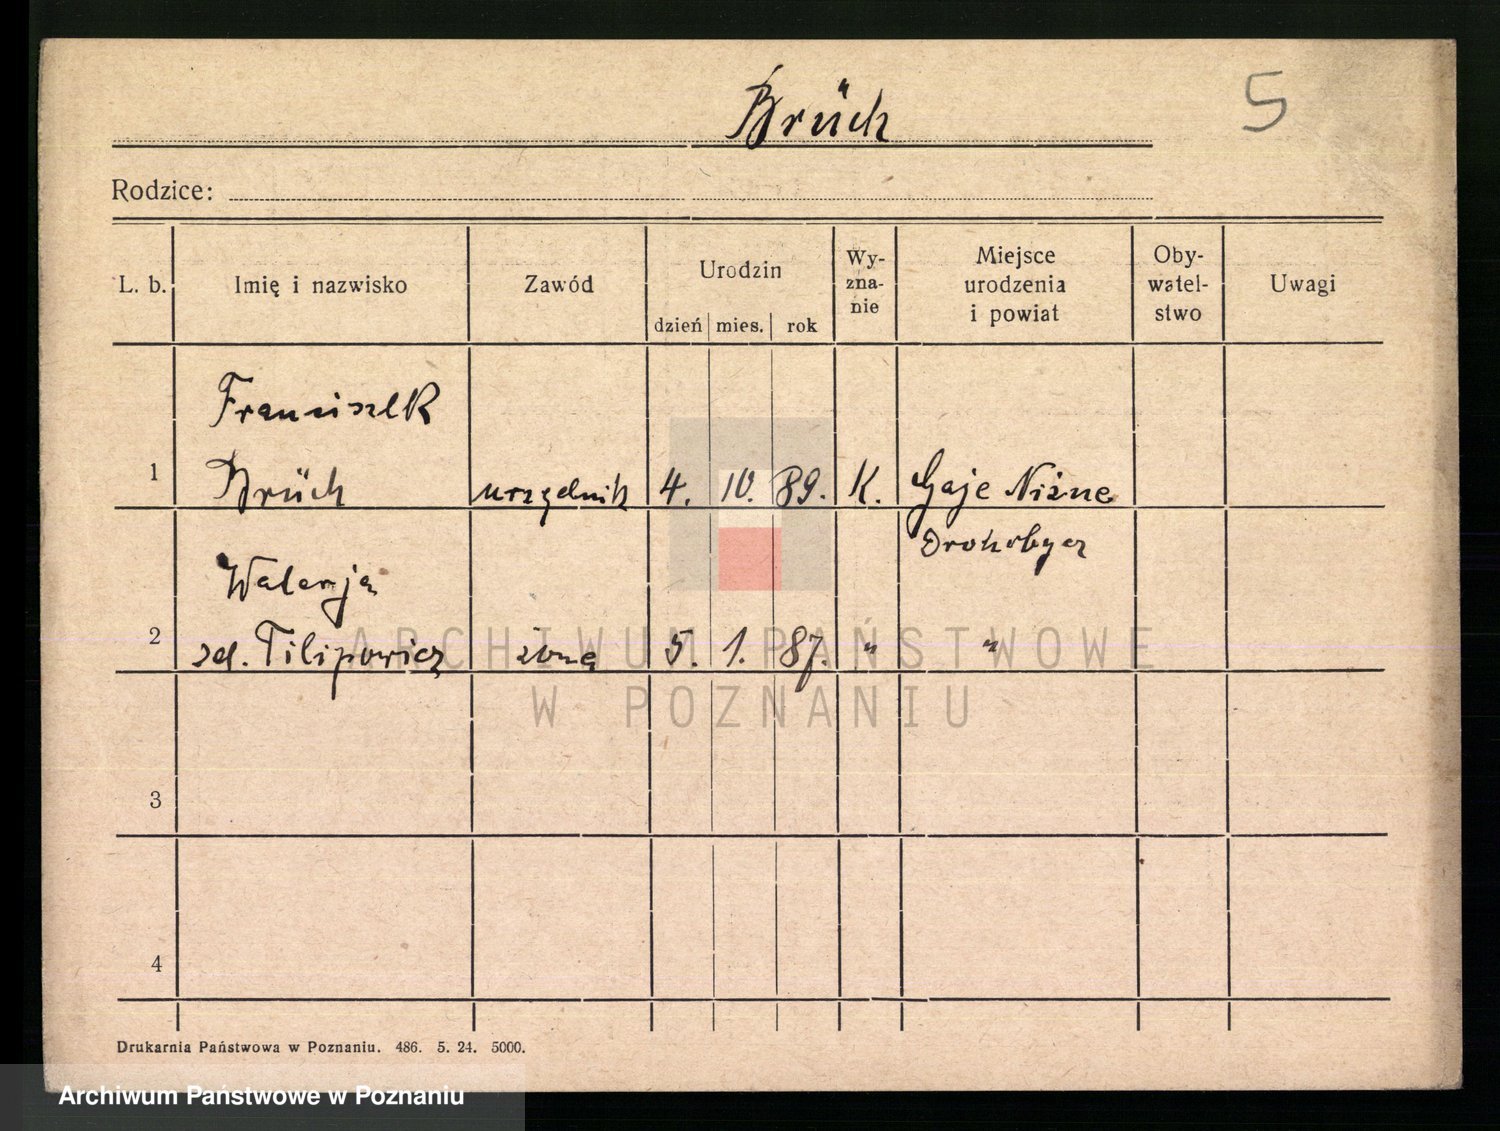 Brüch
5
Rodzice:
L. b.
Imię i nazwisko
Zawód
Urodzin
dzień
mies.
rok
Wy-
zna-
nie
Miejsce
urodzenia
i powiat
Oby-
watel-
stwo
Uwagi
Franciszek
1
Brüch
urzędnik
4.
10.
89.
K.
Gaje Niżne
Drohobycz
Walerja
2
zd. Filipowicz
żona
5.
1.
87.
"
"
3
4
ARCHIWUM PAŃSTWOWE
W POZNANIU
Drukarnia Państwowa w Poznaniu. 486. 5. 24. 5000.
Archiwum Państwowe w Poznaniu